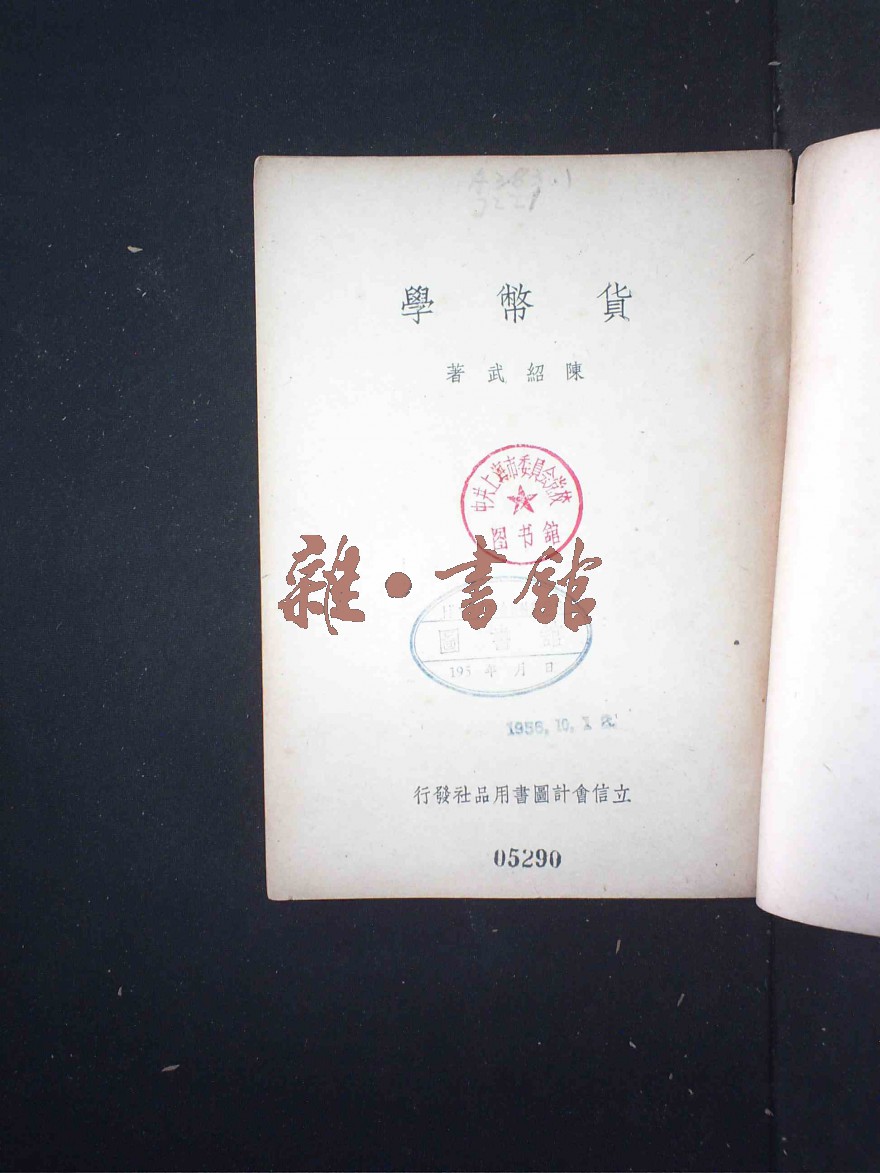 學幣貨
著武紹陳
中共上海市委員会党校
图书館
雜·書館
圖書館
195 年 月 日
1956.10.1
行發社品用書圖計會信立
05290